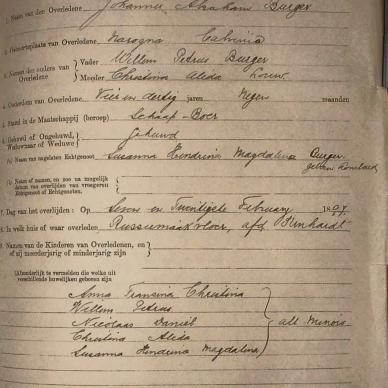 1. Naam van den Overledene Johannes Abraham Burger
2. Geboorteplaats van Overledene Calvinia
3. Namen der ouders van Overledene { Vader Willem Petrus Burger
Moeder Christina Alida Louw
4. Ouderdom van Overledene Vier en dertig jaren Negen maanden
5. Stand in de Maatschappij (beroep) Schaap-Boer
6. Gehuwd of Ongehuwd, Weduwnaar of Weduwe } Gehuwd
(a) Naam van nagelaten Echtgenoot Susanna Hendrina Magdalena Burger
geboren
(b) Naam of namen, en zoo na mogelijk datum van overlijden van vroegeren Echtgenoot of Echtgenooten,
7. Dag van het overlijden : Op Seven en Twintigste February 1897
8. In welk huis of waar overleden afd
9. Namen van de Kinderen van Overledenen, en of zij meerderjarig of minderjarig zijn
(Afzonderlijk te vermelden die welke uit verschillende huwelijken geboren zijn
Anna Christina
Willem Petrus
Nicolaas Daniel
Christina Alida
Susanna Hendrina Magdalena
all Minors